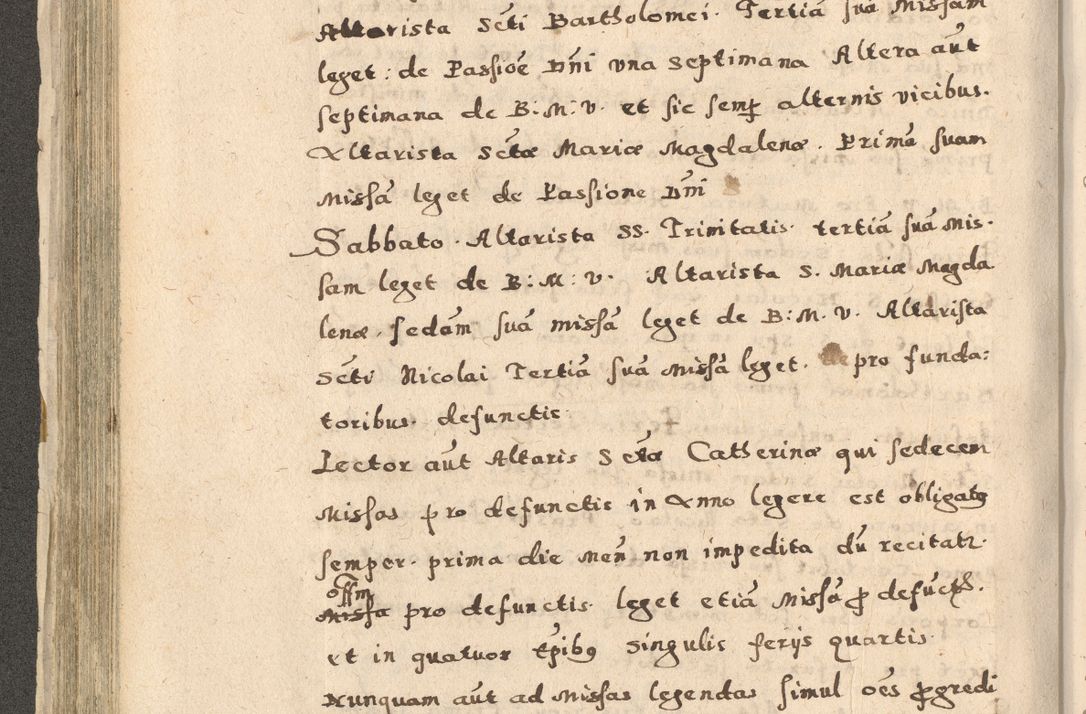 Altarista Scti Bartholomei. Tertiã suã Missam
leget: de Passioẽ Dñi vna Septimana Altera aũt
septimana de B: M: V. et sic semp alternis vicibus.
Altarista Sctæ Mariæ Magdalenæ. Primã suam
Missã leget de Passione Dñi
Sabbato. Altarista SS. Trinitatis. tertiã suã Mis-
sam leget de B: M: V. Altarista S. Mariæ Magda
lenæ. secdam suã missã leget de B: M. V. Altarista
Scti Nicolai Tertiã suã Missã leget. pro funda:
toribus. defunctis.
Lector aũt Altaris Sctæ Catherinæ qui sedecem
Missas pro defunctis in Anno legere est obligatꝰ
semper. prima die Meñ non impedita dũ recitatr.
offm
Missa pro defunctis. leget etiã Missã ꝓ defũct.
et in quatuor tp̃ibꝰ singulis ferijs quartis.
Nunquam aũt ad Missas legendas simul oẽs ꝓgredi